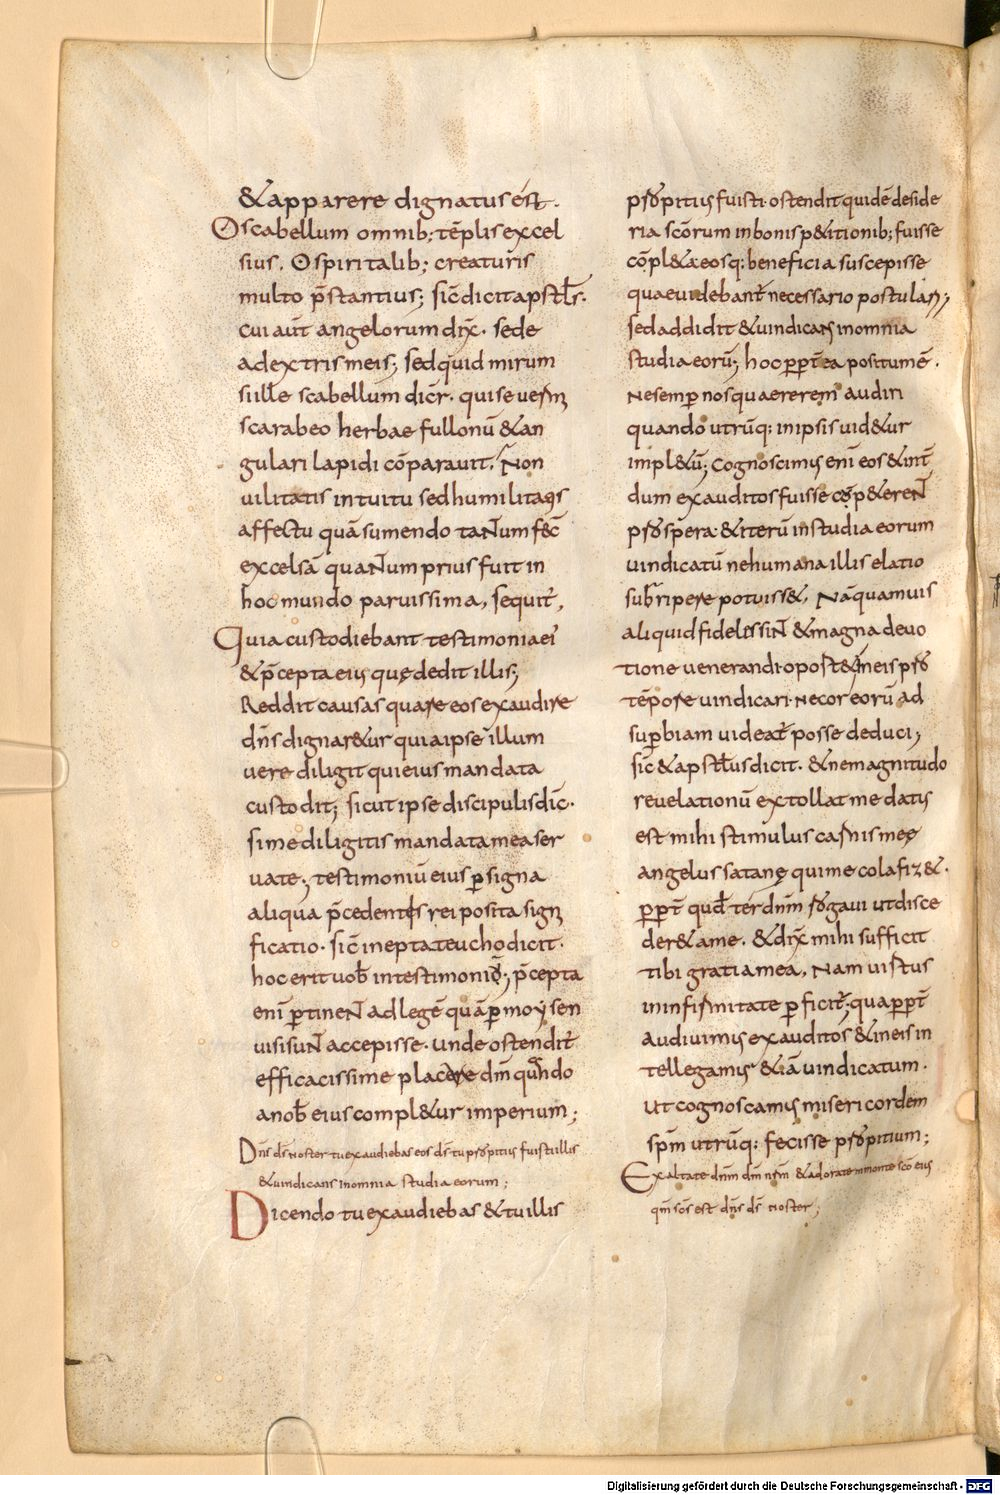 &apparere dignatus est.
O scabellum omnib; tēplis excel
sius. O spiritalib; creaturis
multo p̄stantius; sic̄ dicit apstl̄s.
cui aūt angelorum dix̄. sede
adextris meis; sed quid mirum
si ille scabellum dicr̄. qui se uerm
scarabeo herbae fullonū &an
gulari lapidi cōparauit. Non
uilitatis intuitu sed humilitatis
affectu quā sumendo tantum fec̄
excelsā quantum prius fuit in
hoc mundo paruissima, sequit̄,
Quia custodiebant testimonia ei'
&p̄cepta eius quę dedit illis;
Reddit causas quare eos exaudire
dn̄s dignar&ur quia ipse illum
uere diligit qui eius mandata
custodit; sicut ipse discipulis dic̄.
si me diligitis mandata mea ser
uate; testimoniū eius p̄ signa
aliqua p̄cedentis rei posita sign
ficatio. sic̄ in eptateucho dicit.
hoc erit uob̄ in testimoniū; p̄cepta
enī p̄tinent ad legē quā p̄ moysen
uisi sunt accepisse. unde ostendit̄
efficacissime placere dn̄o quando
a nob̄ eius compl&ur imperium;
Dn̄s ds̄ noster tu exaudiebas eos ds̄ tu propitius fuisti illis
&uindicans in omnia studia eorum;
Dicendo tu exaudiebas &tu illis
propitius fuisti. ostendit quidē deside
ria scōrum in bonis p&itionib; fuisse
cōpl&a. eosq: beneficia suscepisse
quae uidebant̄ necessario postulari,
sed addidit &uindicans in omnia
studia eorū; hoc pp̄t̄ea positumē.
Ne semp̄ nos quaereremꝰ audiri
quando utrūq: in ipsis uid&ur
impl&ū; Cognoscimus enī eos &int̄
dum exauditos fuisse cōp&erent
prosp̄era. &iterū in studia eorum
uindicatū ne humana illis elatio
subripere potuiss&, Nā quamuis
aliquid fidelissint &magna deuo
tione uenerandi. oport& in eis pro
tēpore uindicari. Ne cor eorū ad
sup̄biam uideat̄ posse deduci;
sic̄ &apstl̄us dicit. &ne magnitudo
reuelationū extollat me datus
est mihi stimulus carnis meę
angelus satanę qui me colafiz&.
pp̄t̄ qud̄ ter dn̄m rogaui ut disce
der& a me. &dix̄ mihi sufficit
tibi gratia mea, Nam uirtus
in infirmitate p̄ficit̄; qua pp̄t̄
audiuimus exauditos &in eis in
tellegamus &iā uindicatum.
Ut cognoscamus misericordem
spm̄ utrūq: fecisse propitium;
Exaltate dn̄m dm̄ nr̄m &adorate in monte scō eius
qm̄ scs̄ est dn̄s ds̄ noster;
Digitalisierung gefördert durch die Deutsche Forschungsgemeinschaft - DFG